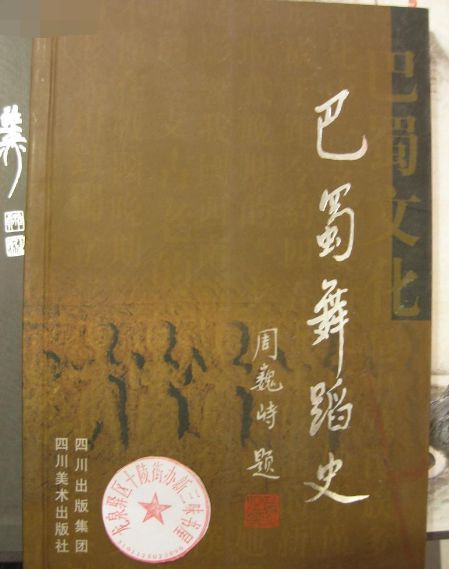 巴蜀舞蹈史
周巍峙 题
巴蜀文化
四川出版集团
四川美术出版社
龙泉驿区十陵街办新三味书屋